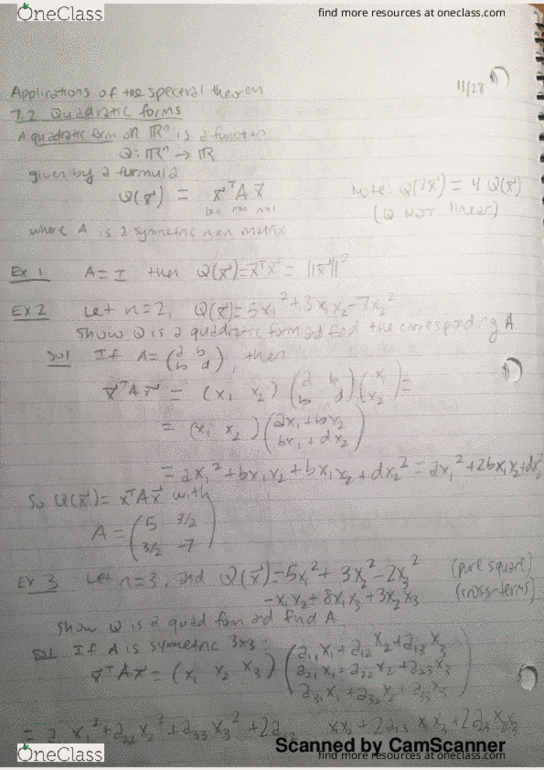 OneClass
find more resources at oneclass.com
11/28
Applications of the spectral theorem
7.2 Quadratic forms
A quadratic form on ℝⁿ is a function
Q: ℝⁿ → ℝ
given by a formula
Q(x⃗) = x⃗ᵀA x⃗
1×n n×n n×1
Note: Q(2x⃗) = 4 Q(x⃗)
(Q NOT linear)
where A is a symmetric n×n matrix
Ex 1 A = I then Q(x⃗) = x⃗ᵀx⃗ = ||x⃗||²
Ex 2 Let n=2, Q(x⃗) = 5x₁² + 3x₁x₂ - 7x₂²
Show Q is a quadratic form and find the corresponding A.
Sol If A = (a b; b d), then
x⃗ᵀA x⃗ = (x₁ x₂) (a b; b d) (x₁; x₂) =
= (x₁ x₂) (ax₁ + bx₂; bx₁ + dx₂)
= ax₁² + bx₁x₂ + bx₁x₂ + dx₂² = ax₁² + 2bx₁x₂ + dx₂²
So Q(x⃗) = x⃗ᵀA x⃗ with
A = (5 3/2; 3/2 -7)
Ex 3 Let n=3, and Q(x⃗) = 5x₁² + 3x₂² - 2x₃² (pure square)
- x₁x₂ + 8x₁x₃ + 3x₂x₃ (cross-terms)
Show Q is a quad form and find A
Sol If A is symmetric 3x3:
x⃗ᵀA x⃗ = (x₁ x₂ x₃) (a₁₁x₁ + a₁₂x₂ + a₁₃x₃; a₂₁x₁ + a₂₂x₂ + a₂₃x₃; a₃₁x₁ + a₃₂x₂ + a₃₃x₃)
= a x₁² + a₂₂x₂² + a₃₃x₃² + 2a₁₂ x₁x₂ + 2a₁₃x₁x₃ + 2a₂₃x₂x₃
Scanned by CamScanner
OneClass
find more resources at oneclass.com